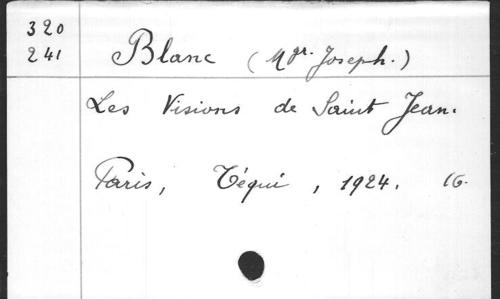 320
241
Blanc (Mgr. Joseph.)
Les Visions de Saint Jean.
Paris, Téqui, 1924. 16.